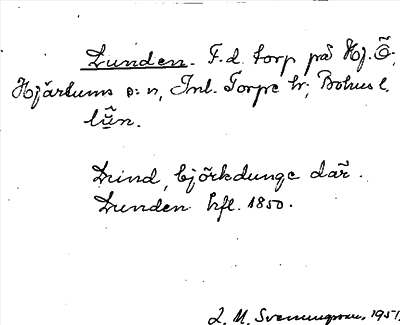 Dunden. F. d. torp på Hj. Ö.,
Hjärtums s:n, Inl. Torpe hr; Bohus l.
län.
Dund, björkdunge där.
Dunden hfl. 1850.
L. M. Svenungsson, 1951.